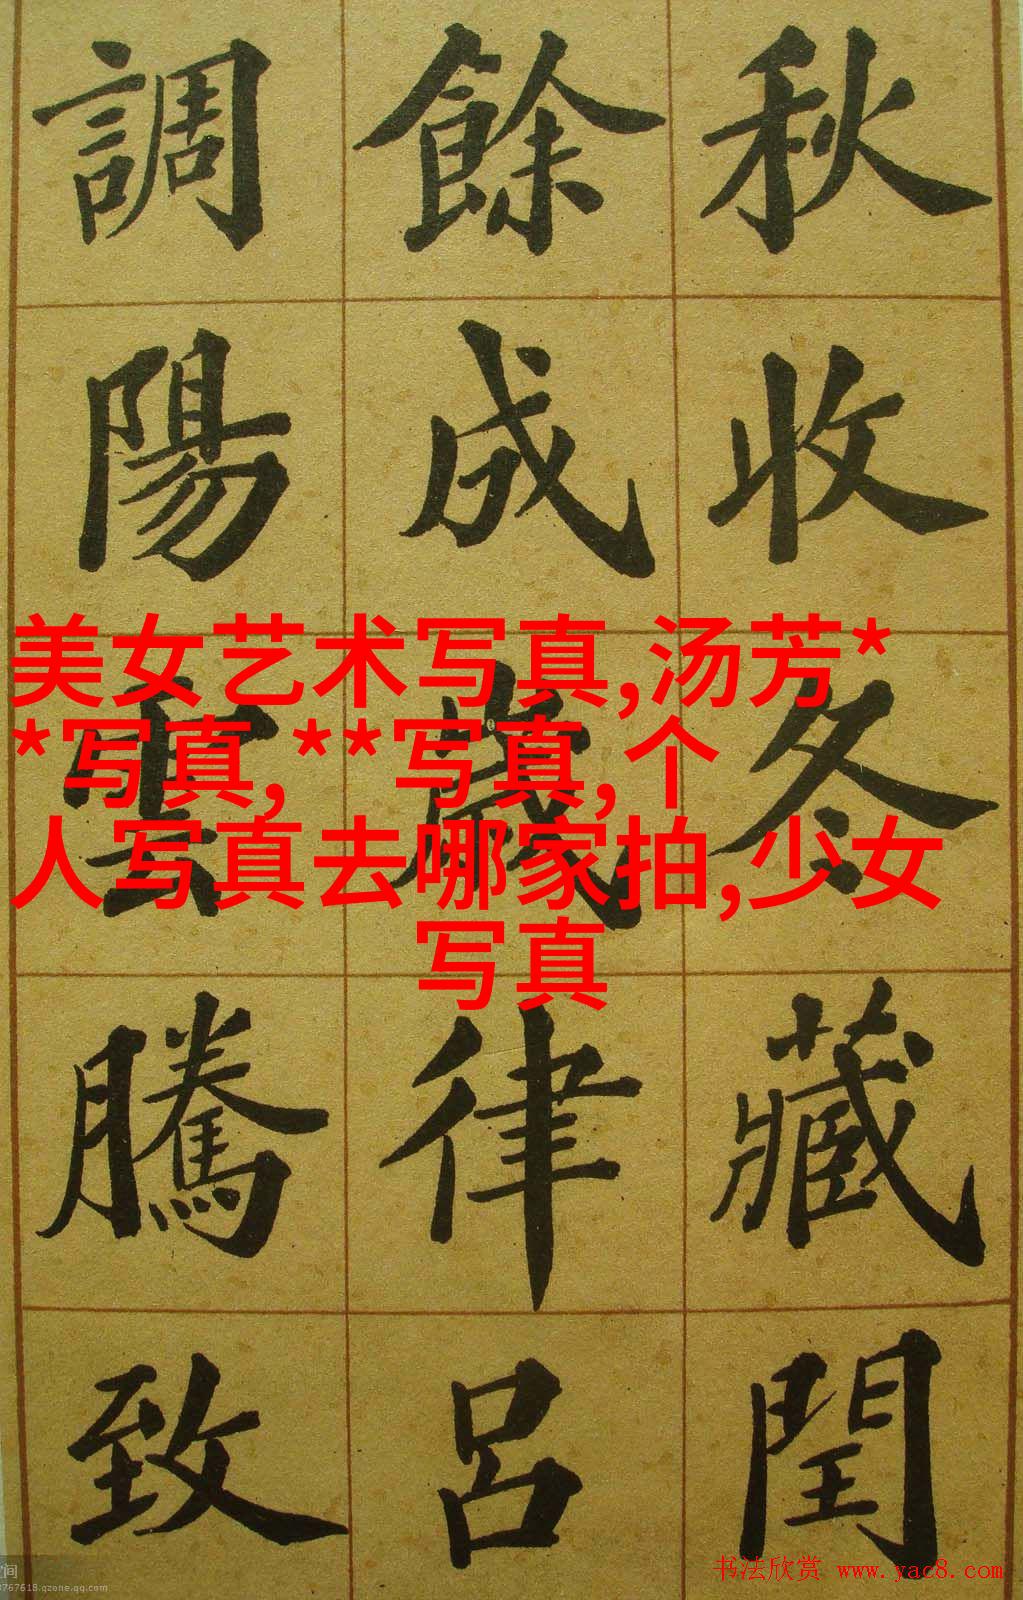 秋收冬藏閏
餘成歲律呂
調陽雲騰致
美女艺术写真,汤芳*
*写真,**写真,个
人写真去哪家拍,少女
写真
书法欣赏 www.yac8.com
空间
3767618.qzone.qq.com